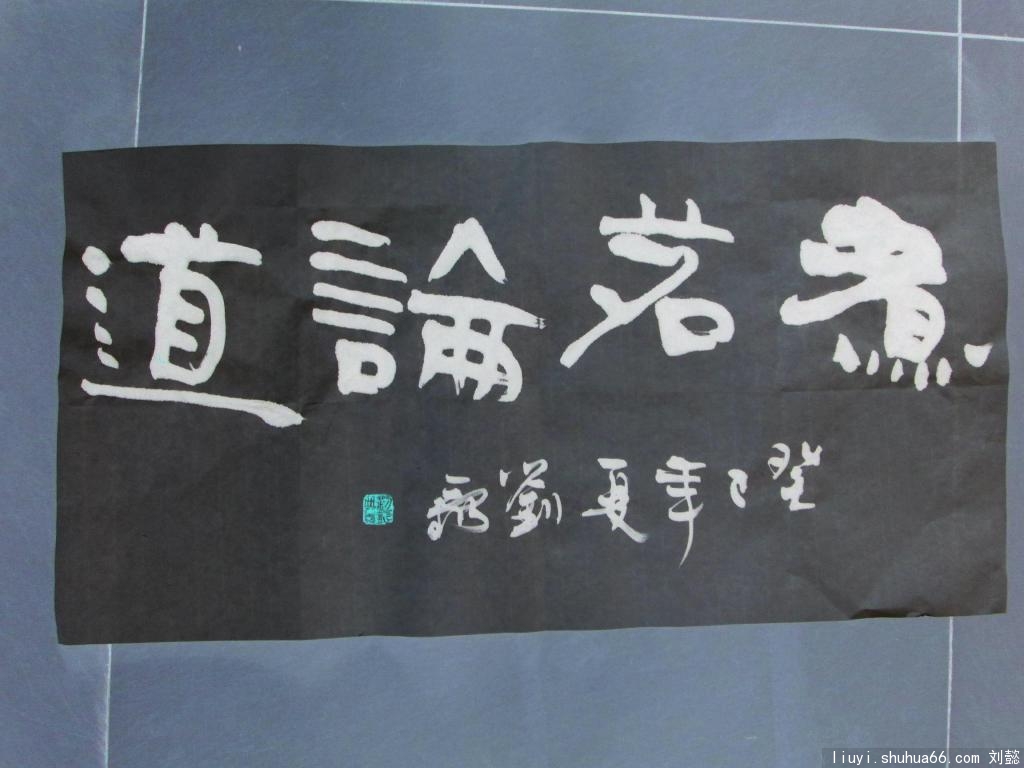 煮茗論道
癸巳年夏劉懿
liuyi.shuhua66.com 刘懿